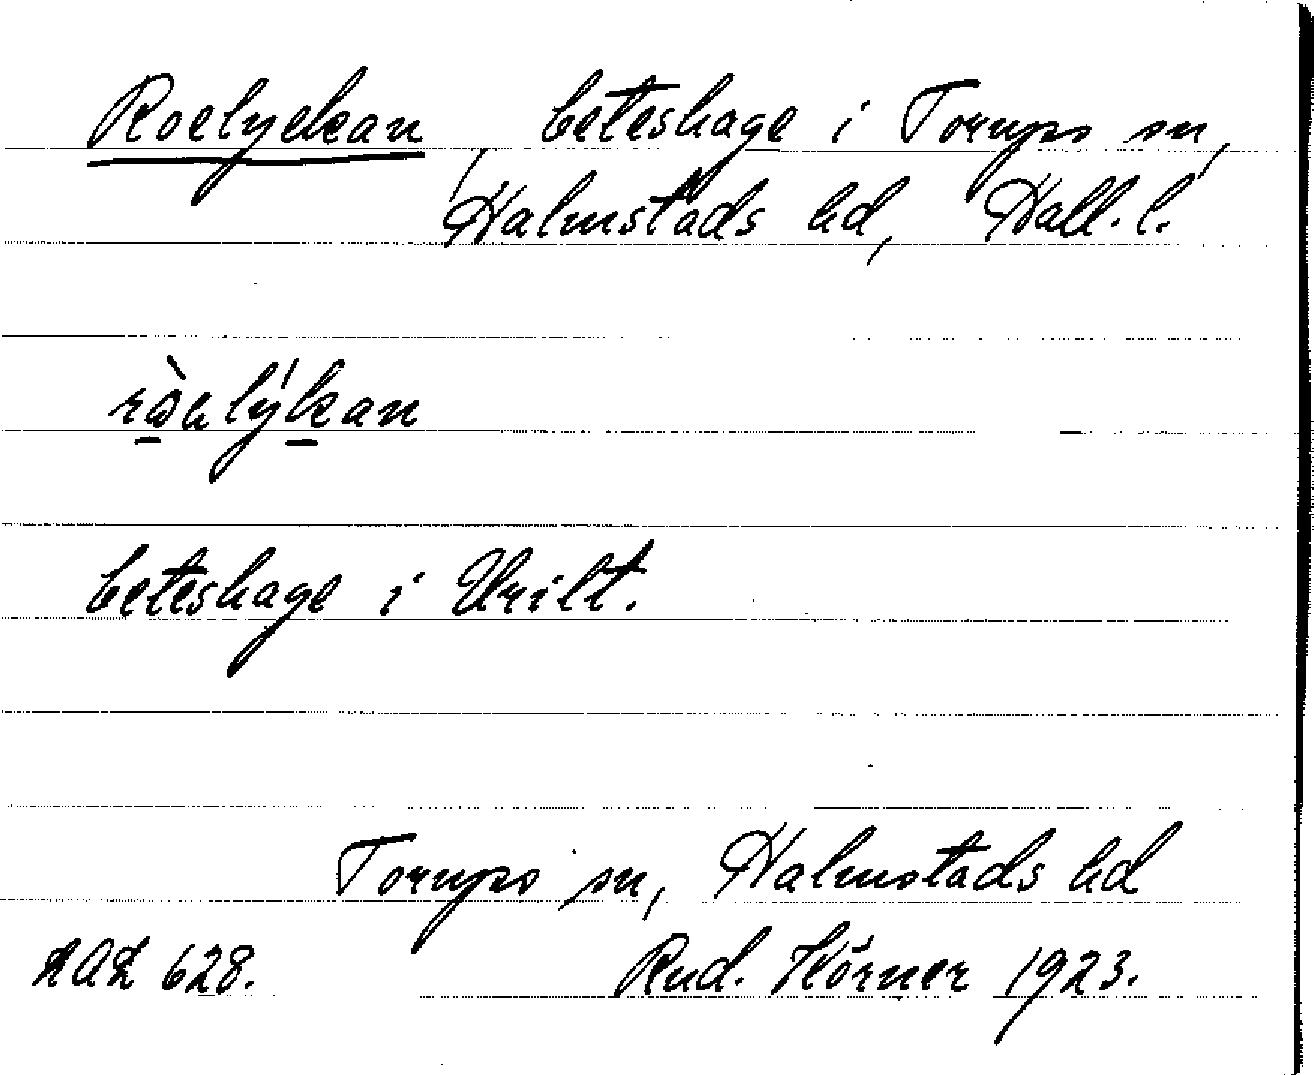 Roelyckan, beteshage i Torups sn,
Halmstads hd, Hall. l.
beteshage i Vrilt.
Torups sn, Halmstads hd
628. Rud. Hörner 1923.